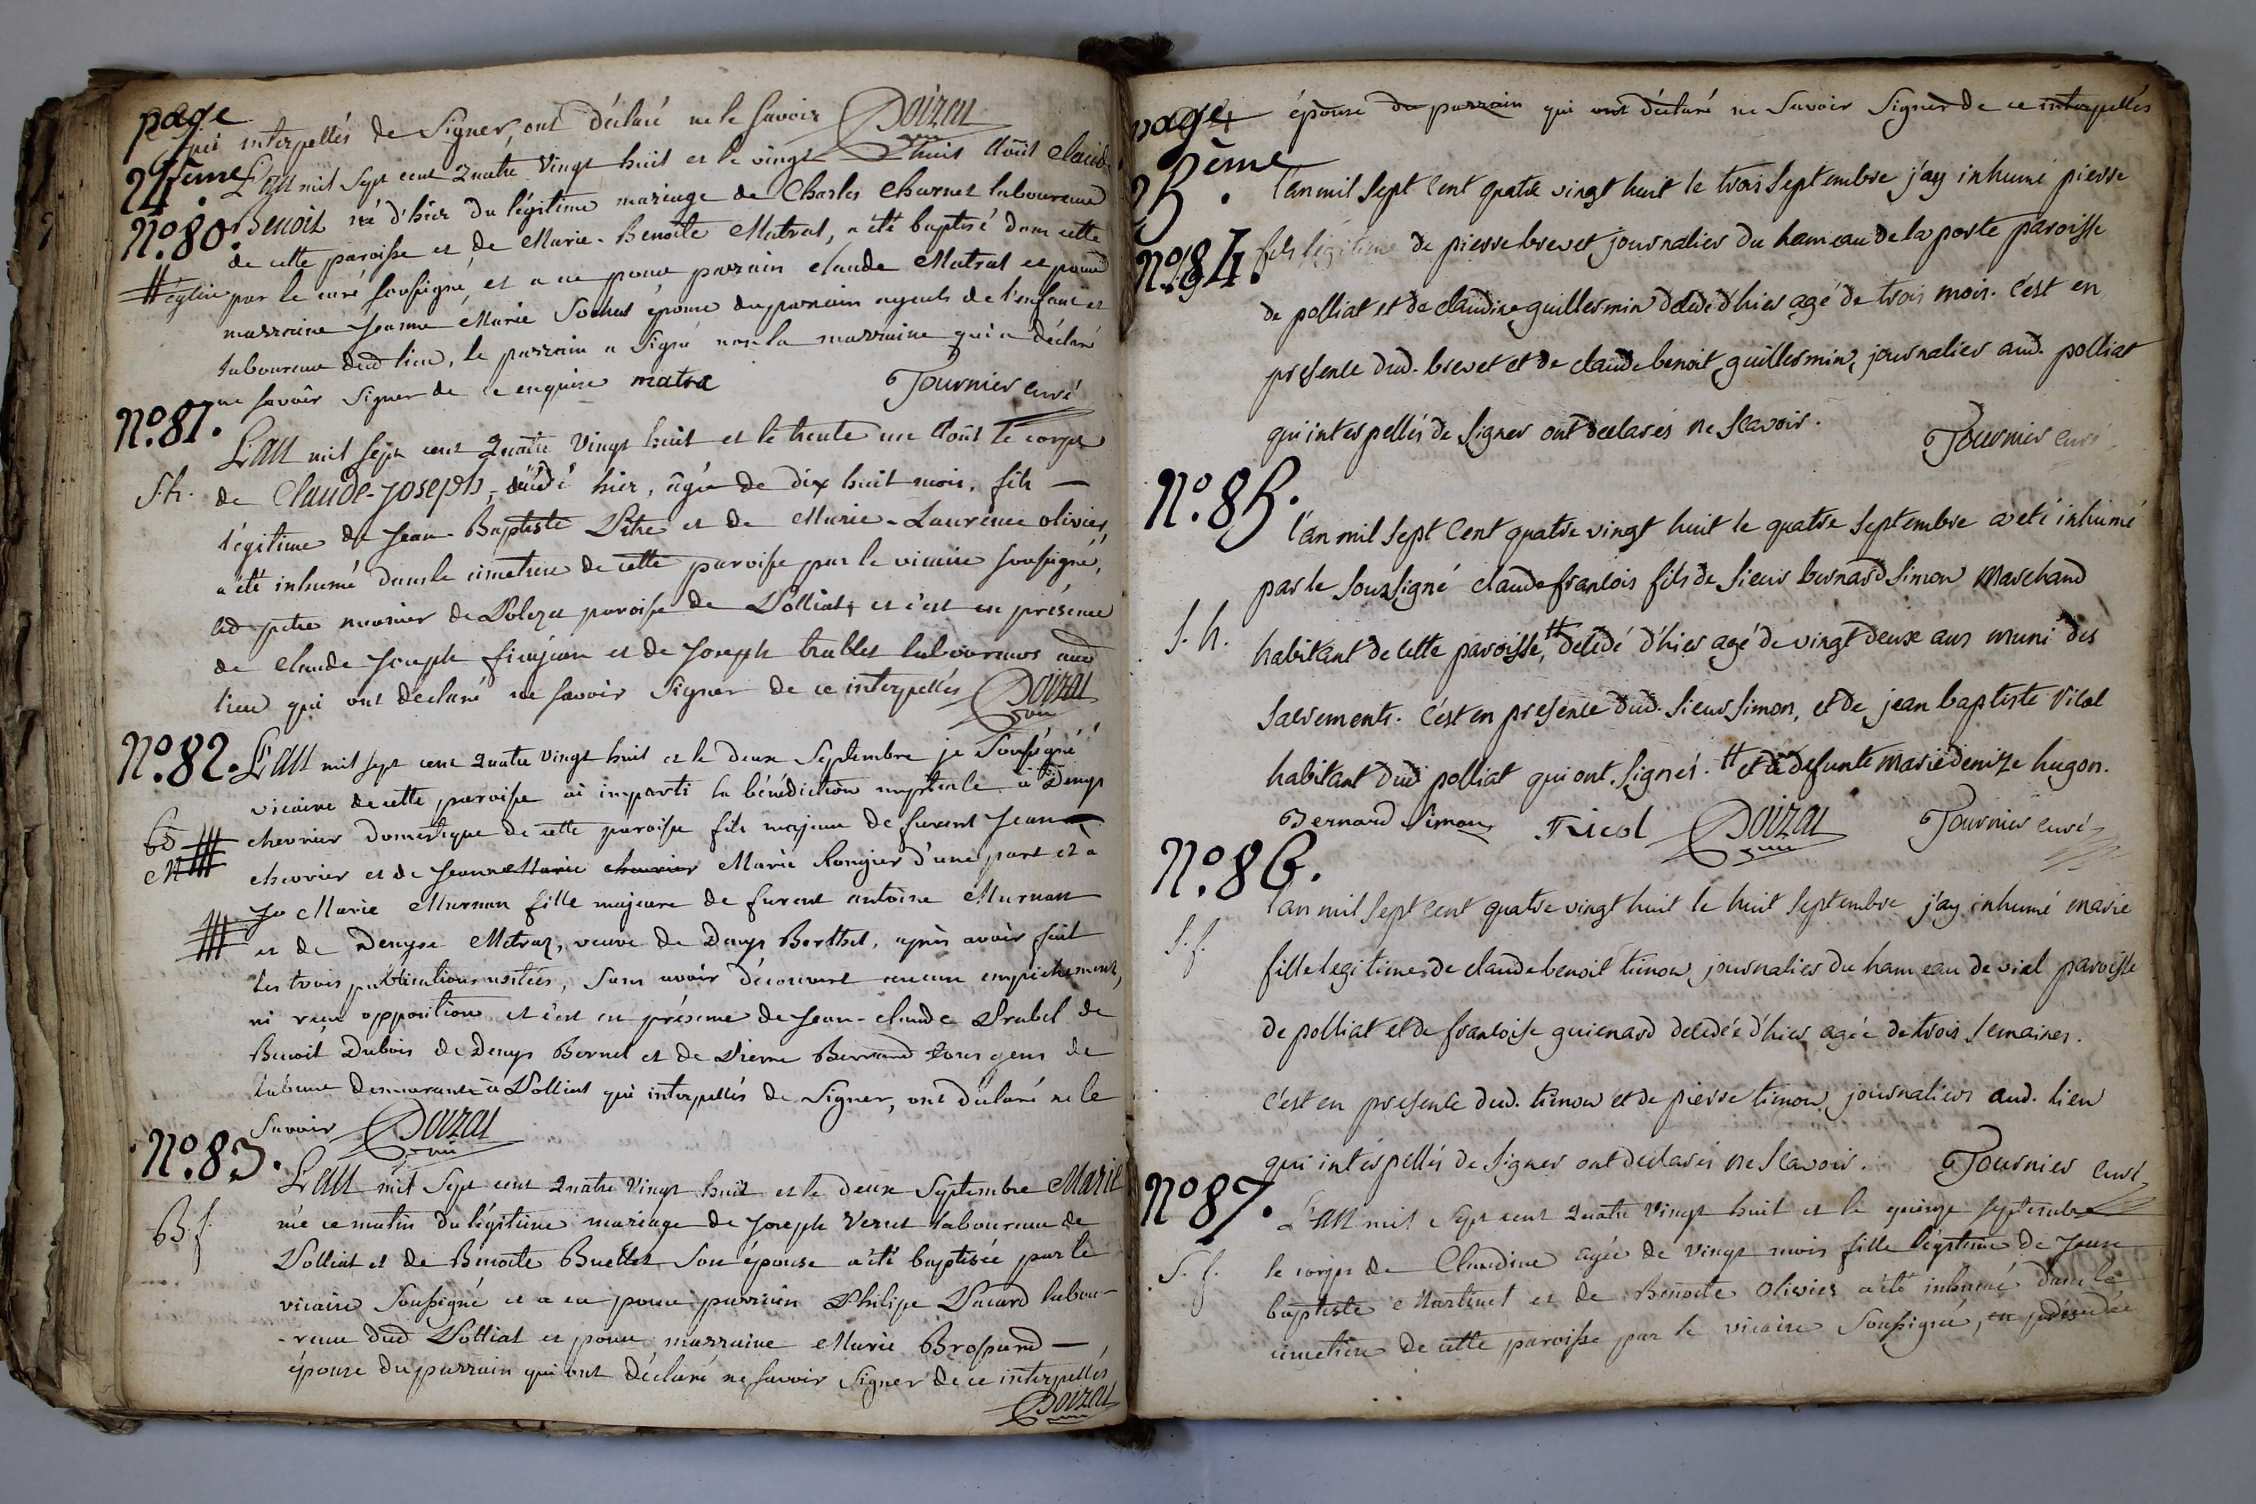 page
24ème.
qui interpellés de signer, ont déclaré ne le savoir Doizat
vic
L'an mil sept cent quatre vingt huit et le vingt huit août Claude
N°. 80.
Benoit né d'hier du légitime mariage de Charles Charnet laboureur
de cette paroisse et de Marie-Benoite Matrat, a été baptisé dans cette
église par le curé soussigné, et a eu pour parrain claude Matrat et pour
marraine Jeanne Marie Sochat épouse du parrain ayeuls de l'enfant et
laboureur dud lieu, le parrain a signé non la marraine qui a déclaré
ne savoir signer de ce enquise matra Tournier curé
N°. 81.
L'an mil sept cent quatre vingt huit et le trente un août le corps
S. h.
de Claude-Joseph décédé hier, âgé de dix huit mois, fils
légitime de Jean-Baptiste Pitre et de Marie-Laurence olivier,
a été inhumé dans le cimetière de cette paroisse par le vicaire soussigné,
led pitre meunier de paroisse de Polliat, et c'est en présence
de claude Joseph et de Joseph laboureurs aud
lieu qui ont déclaré ne savoir signer de ce interpellés Doizat
vic
N°. 82.
L'an mil sept cent quatre vingt huit et le deux septembre je soussigné
vicaire de cette paroisse ai imparti la bénédiction nuptiale à Denys
chevrier domestique de cette paroisse fils majeur de furent Jean
M
chevrier et de Jeanne Marie chevrier Marie Rongier d'une part et a
Marie Murnan fille majeure de furent antoine Murnan
et de Denyse Metraz, veuve de Denys Berthet, après avoir fait
les trois publications usitées, sans avoir découvert aucun empêchement,
ni reçu opposition et c'est en présence de Jean-claude de
Benoit Dubois de Denys Bernet et de Pierre tous gens de
labeur demeurants à Polliat qui interpellés de signer, ont déclaré ne le
savoir Doizat
vic
N°. 83.
L'an mil sept cent quatre vingt huit et le deux septembre Marie
B. f.
née ce matin du légitime mariage de Joseph Vernet laboureur de
Polliat et de Benoite Buellet son épouse a été baptisée par le
vicaire soussigné et a eu pour parrain Philipe Pacard labou-
-reur dud Polliat et pour marraine Marie Brossard
épouse du parrain qui ont déclaré ne savoir signer de ce interpellés
Doizat
page
25ème.
épouse du parrain qui ont déclaré ne savoir signer de ce interpellés
l'an mil sept cent quatre vingt huit le trois septembre j'ay inhumé pierre
N°. 84.
fils légitime de pierre brevet journalier du hameau de la porte paroisse
de polliat et de claudine guillermin décédé d'hier agé de trois mois. c'est en
presence dud. brevet et de claude benoit guillermin, journalier aud. polliat
qui interpellés de signer ont declarés ne scavoir. Tournier curé
N°. 85.
l'an mil sept cent quatre vingt huit le quatre septembre a eté inhumé
par le soussigné claude francois fils de sieur bernard simon marchand
S. h.
habitant de cette paroisse, # decédé d'hier agé de vingt deux ans muni des
sacrements. c'est en presence dud. sieur simon, et de jean baptiste
habitant dud polliat qui ont signés. # et de defunte marie denize hugon.
Bernard Simon Doizat Tournier curé
vic
N°. 86.
l'an mil sept cent quatre vingt huit le huit septembre j'ay inhumé marie
S. f.
fille legitime de claude benoit timon journalier du hameau de vial paroisse
de polliat et de francoise guienard decedée d'hier agée de trois semaines.
c'est en presence dud. timon et de pierre timon journaliers aud. lieu
qui interpellés de signer ont declarés ne scavoir. Tournier curé
N°. 87.
L'an mil sept cent quatre vingt huit et le quinze septembre
S. f.
le corps de Claudine agée de vingt mois fille légitime de Jean
baptiste Martinet et de Benoite Olivier a été inhumé dans le
cimetière de cette paroisse par le vicaire soussigné, en présence